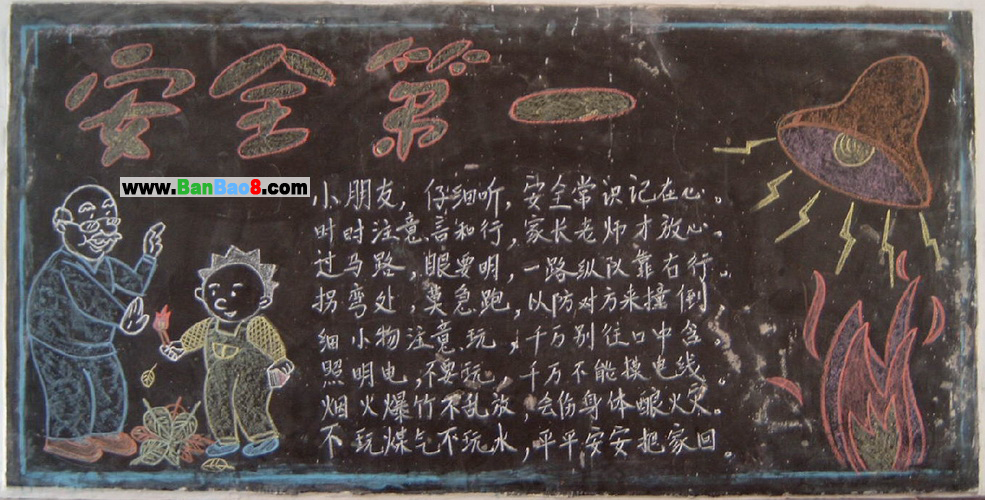 安全第一
www.BanBao8.com
小朋友，仔细听，安全常识记在心。
时时注意言和行，家长老师才放心。
过马路，眼要明，一路纵队靠右行。
拐弯处，莫急跑，以防对方来撞倒。
细小物注意玩，千万别往口中含。
照明电，不要玩，千万不能摸电线。
烟火爆竹不乱放，会伤身体酿火灾。
不玩煤气不玩水，平平安安把家回。